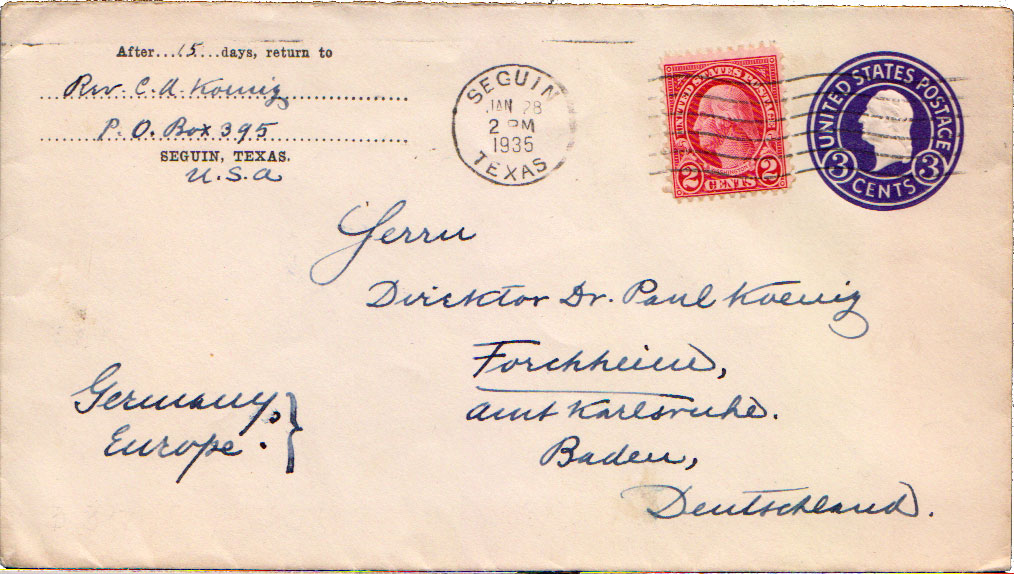 After...15...days, return to
Rev. C. A. Koenig
P. O. Box 395
SEGUIN, TEXAS.
U.S.A
SEGUIN
JAN 28
2 PM
1935
TEXAS
UNITED STATES POSTAGE
2 CENTS 2
UNITED STATES POSTAGE
3 CENTS 3
Herrn
Direktor Dr. Paul Koenig
Forchheim,
Amt Karlsruhe.
Baden,
Deutschland.
Germany,
Europe.